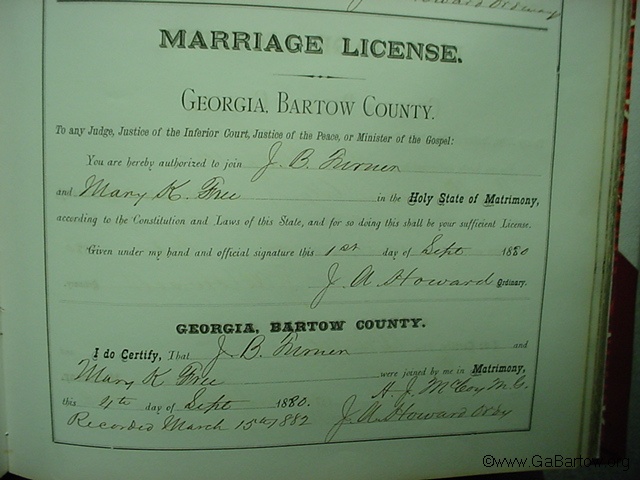 Howard Ordway
MARRIAGE LICENSE.
GEORGIA, BARTOW COUNTY.
To any Judge, Justice of the Inferior Court, Justice of the Peace, or Minister of the Gospel:
You are hereby authorized to join J. B. Turner
and Mary K. Free in the Holy State of Matrimony,
according to the Constitution and Laws of this State, and for so doing this shall be your sufficient License.
Given under my hand and official signature this 1st day of Sept 1880
J A Howard Ordinary.
GEORGIA, BARTOW COUNTY.
I do Certify, That J. B. Turner and
Mary K Free were joined by me in Matrimony,
this 4th day of Sept 1880. A J. McCoy M. G.
Recorded March 15th 1882 J. A. Howard Ordy
©www.GaBartow.org